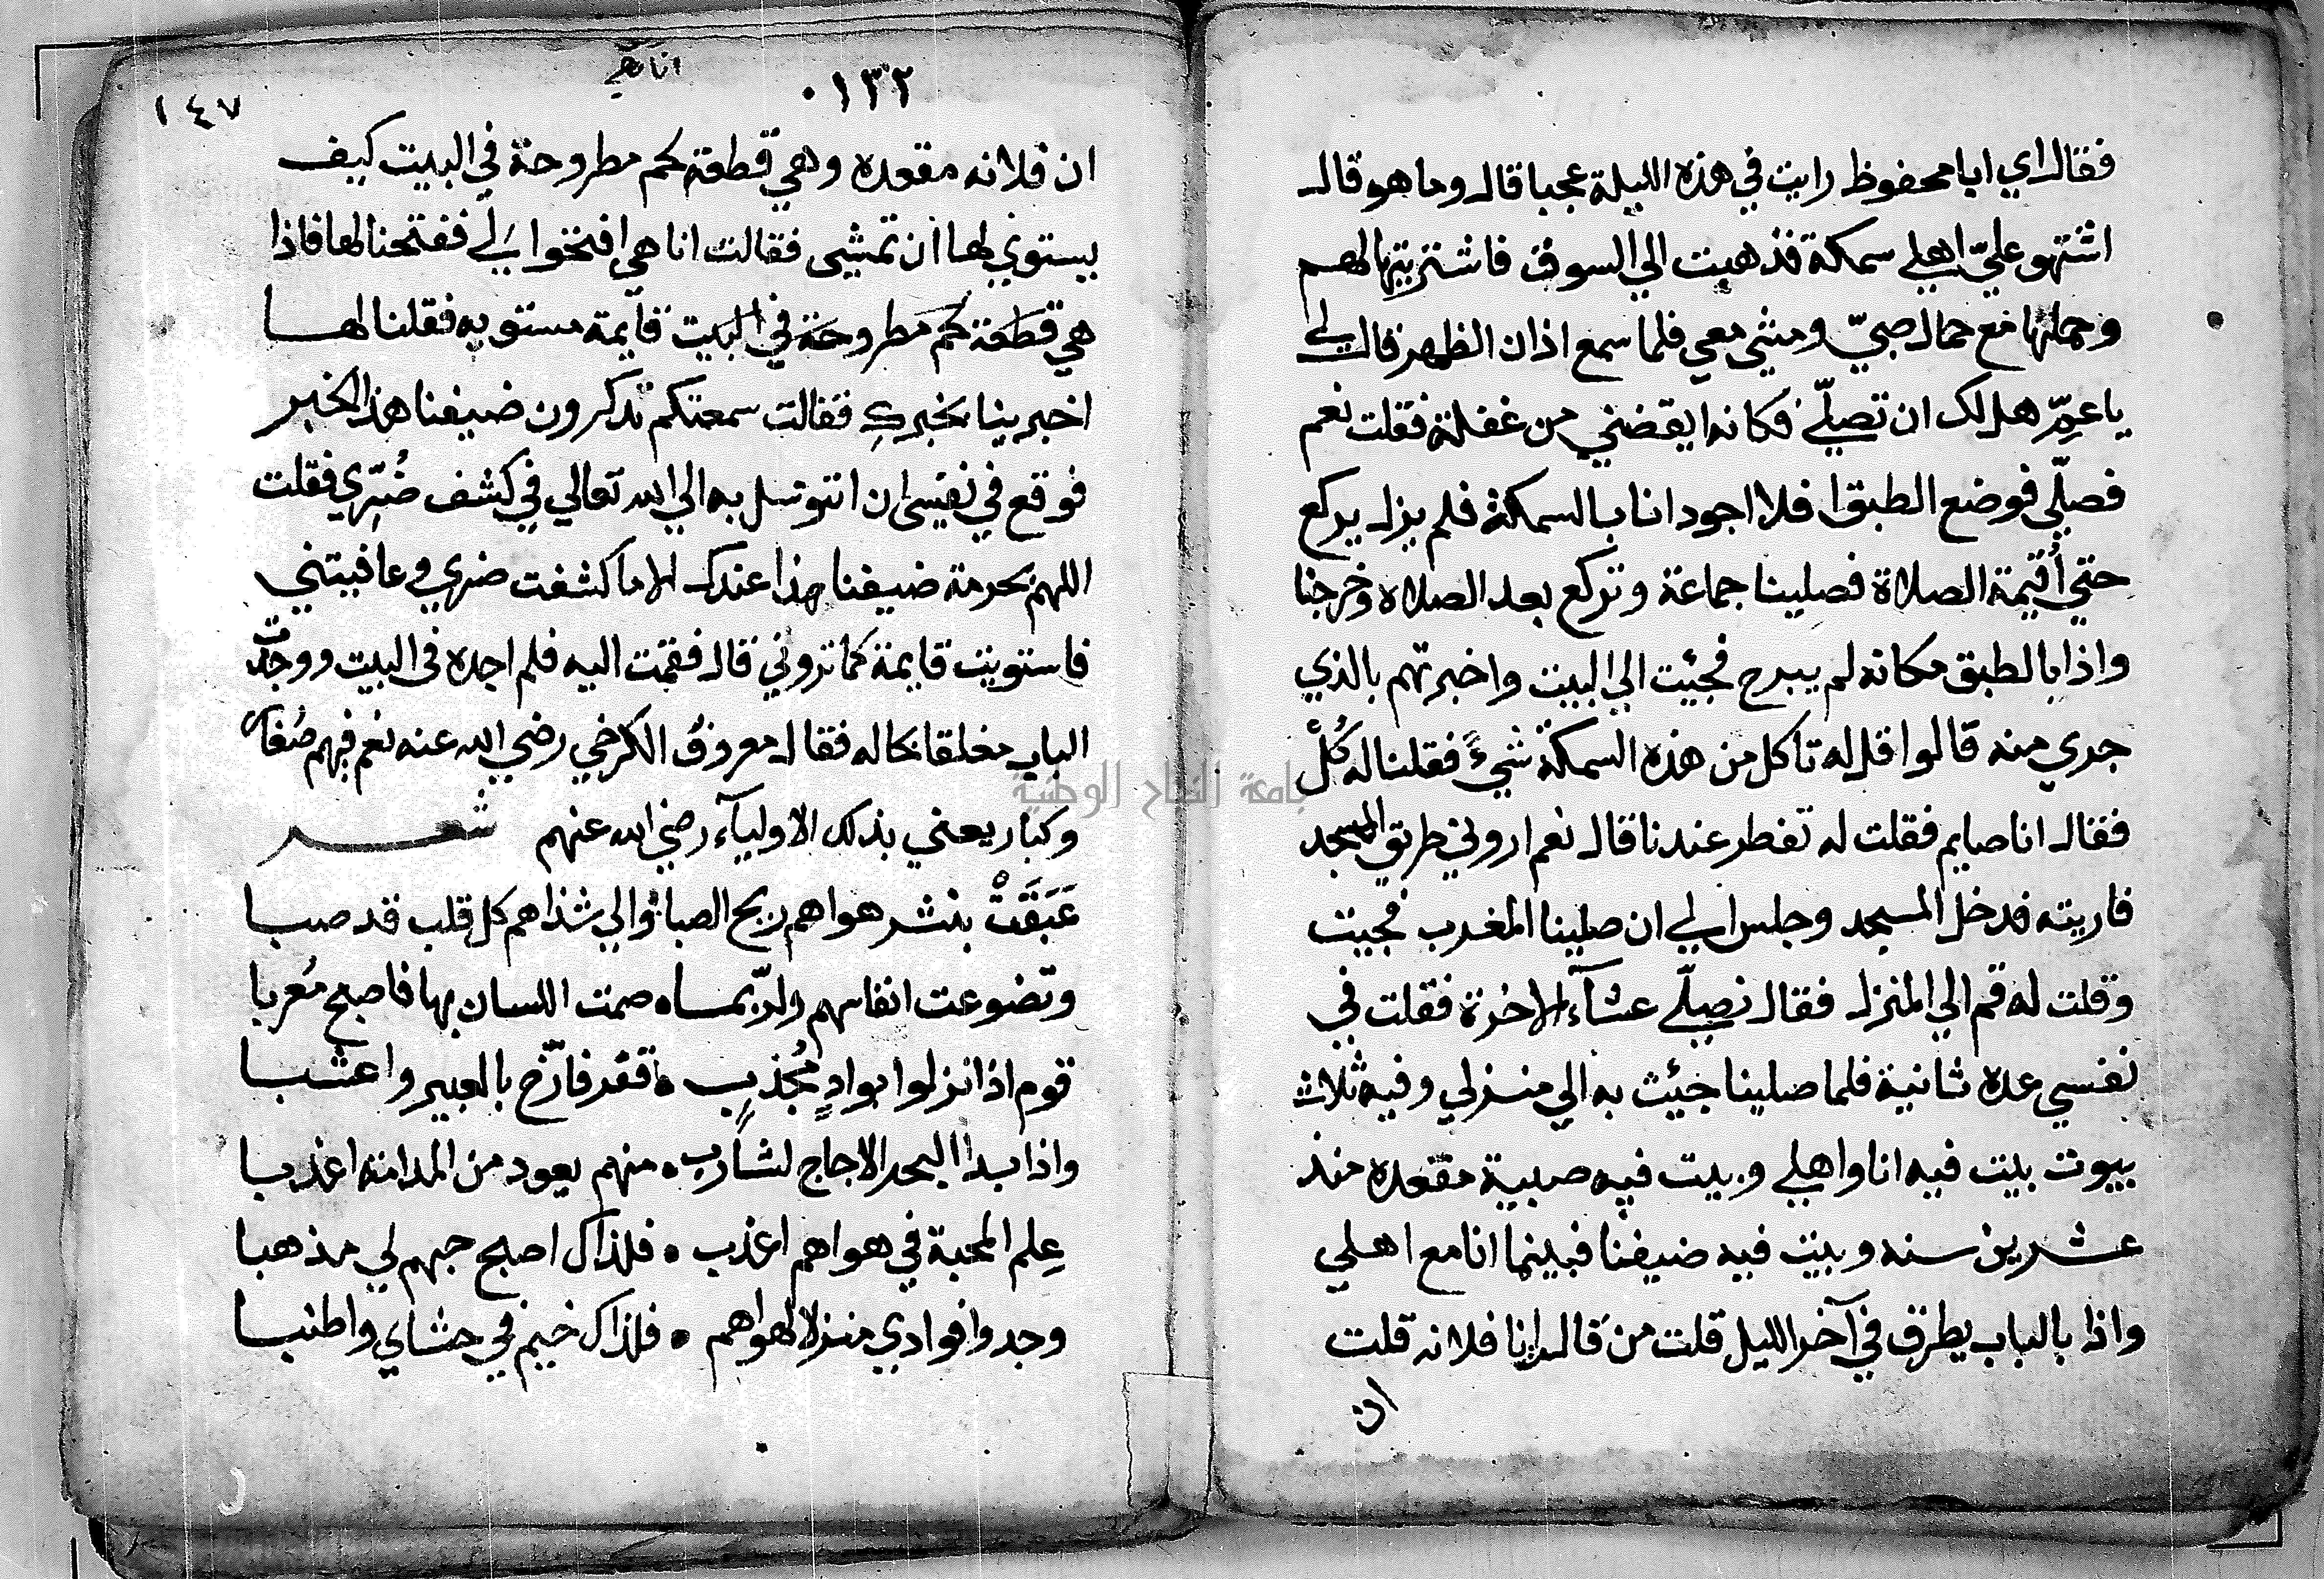 فقال اي ابا محفوظ رايت في هذه الليلة عجبا قال وما هو قال
اشتهو عليّ اهلي سمكة فذهبت الي السوق فاشتريتها لهم
وحملتها مع حمال صبيّ ومشي معي فلما سمع اذان الظهر قال لي
يا عمّ هل لك ان تصلّي فكانه ايقضني من غفلة فقلت نعم
فصلّي فوضع الطبق افلا اجود انا بالسمكة فلم يزل يركع
حتي أُقيمة الصلاة فصلينا جماعة وتركع بعد الصلاه وخرجنا
واذا بالطبق مكانه لم يبرح فجئيت الي البيت واخبرتهم بالذي
جري منه قالوا قل له تاكل من هذه السمكة شيءً فقلنا له كُلْ
فقال انا صايم فقلت له تفطر عندنا قال نعم اروني طريق المسجد
فاريته فدخل المسجد وجلس الي ان صلينا المغرب فجيت
وقلت له قم الي المنزل فقال نصلّي عشآء الاخرة فقلت في
نفسي عده ثانية فلما صلينا جيئت به الي منزلي وفيه ثلاث
بيوت بيت فيه انا واهلي وبيت فيه صبية مقعده منذ
عشرين سنه وبيت فيه ضيفنا فبينما انا مع اهلي
واذا بالباب يطرق في آخر الليل قلت من قال انا فلانه قلت
ان
١٣٢
١٤٧
ان فلانه مقعده وهي قطعة لحم مطروحة في البيت كيف
يستوي لها ان تمشي فقالت انا هي افتحوا لي ففتحنا لها فاذا
هي قطعة لحم مطروحة في البيت قايمة مستويه فقلنا لها
اخبرينا بخبركِ فقالت سمعتكم تذكرون ضيفنا هذا الخبر
فوقع في نفسي ان اتوسل به الي الله تعالي في كشف ضُرّي فقلت
اللهم بحرمة ضيفنا هذا عندك الا ما كشفت ضري وعافيتني
فاستويت قايمة كما تروني قال فقمت اليه فلم اجده في البيت ووجدت
الباب مغلقا بحاله فقال معروف الكرخي رضي الله عنه نعم فيهم صغار
وكبار يعني بذلك الاوليآء رضي الله عنهم شعر
عَبَقَتْ بنشر هواهم ريح الصبا والي شذاهم كل قلب قد صبا
وتضوعت انفاسهم ولربما صمت اللسان بها فاصبح مُعربا
قوم اذا نزلوا بوادٍ مُجذبٍ قفر فارّخ بالعبير واعشبا
واذا بدا البحر الاجاج لشارب منهم يعود من المدامة اعذبا
عِلم المحبة في هواهم اعذب فلذاك اصبح حبهم لي مذهبا
وجدوا فوادي منزلا لهواهم فلذاك خيم في حشاي واطنبا
جامعة النجاح الوطنية